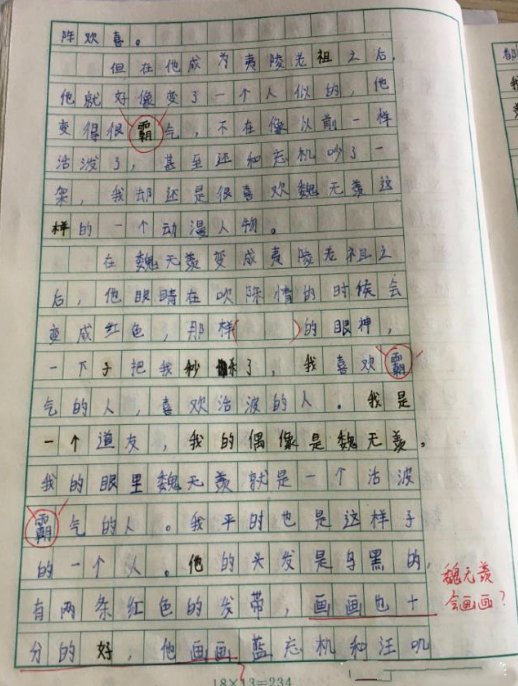 陈欢喜。
但在他成为夷陵老祖之后,
他就好像变了一个人似的,他
变得很霸气,不在像以前一样
活泼了,甚至还和忘机吵了一
架,我却还是很喜欢魏无羡这
样的一个动漫人物。
在魏无羡变成夷陵老祖之
后,他眼睛在吹陈情的时候会
变成红色,那样( )的眼神,
一下子把我秒了,我喜欢霸
气的人,喜欢活波的人。我是
一个道友,我的偶像是魏无羡。
我的眼里魏无羡就是一个活波
霸气的人。我平时也是这样子
的一个人。他的头发是乌黑的,
有两条红色的发带,画画也十
分的好,他画画蓝忘机和汪叽
魏无羡
会画画?
18×13=234
都